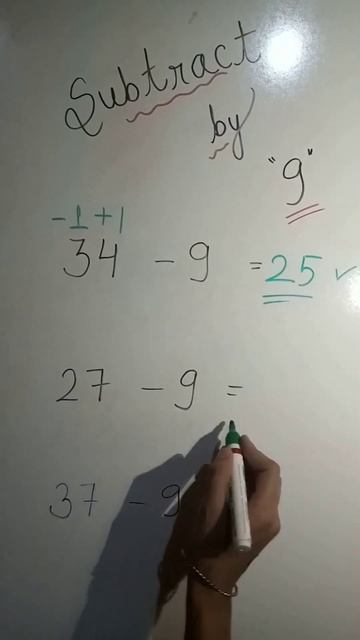 Subtract
by
"9"
-1 +1
34 - 9 = 25 ✓
27 - 9 =
37 - 9